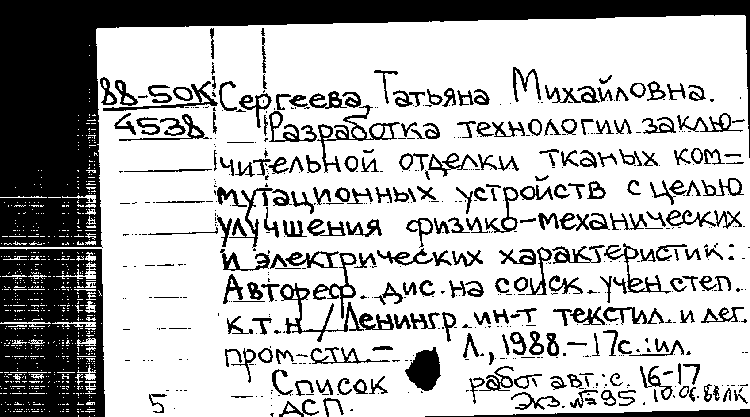 88-50К Сергеева, Татьяна Михайловна.
4538 Разработка технологии заклю-
чительной отделки тканых ком-
мутационных устройств с целью
улучшения физико-механических
и электрических характеристик:
Автореф. дис. на соиск. учен. степ.
к.т.н / Ленингр. ин-т текстил. и лег.
пром-сти. - Л., 1988. - 17с.:ил.
Список работ авт.: с. 16-17
5 АСП. Экз. №95. 10.06.88